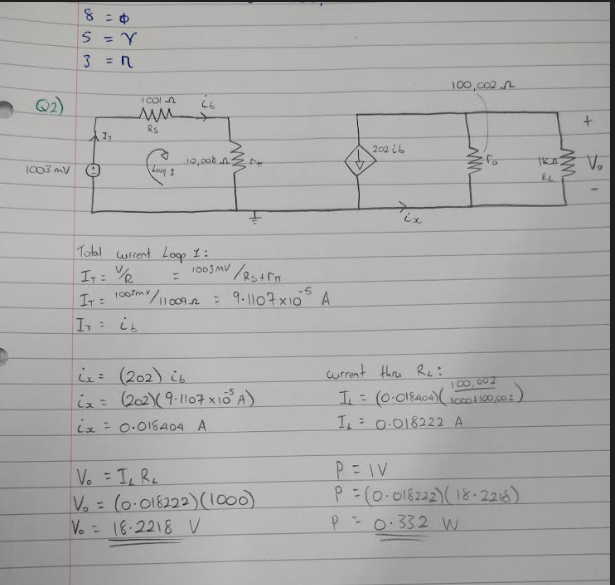 8 = Φ
5 = γ
3 = n
Q2)
1001 Ω
ib
Rs
IT
1003 mV
Loop 1
10,008 Ω
rπ
202 ib
100,002 Ω
ro
1KΩ
RL
+
Vo
-
ix
Total current Loop 1:
IT = V/R = 1003mV/Rs+rπ
IT = 1003mV/11009Ω = 9.1107x10⁻⁵ A
IT = ib
ix = (202) ib
ix = (202)(9.1107 x10⁻⁵ A)
ix = 0.018404 A
current thru RL:
IL = (0.018404)(100,002/1000+100,002)
IL = 0.018222 A
Vo = IL RL
Vo = (0.018222)(1000)
Vo = 18.2218 V
P = IV
P = (0.018222)(18.2218)
P = 0.332 W